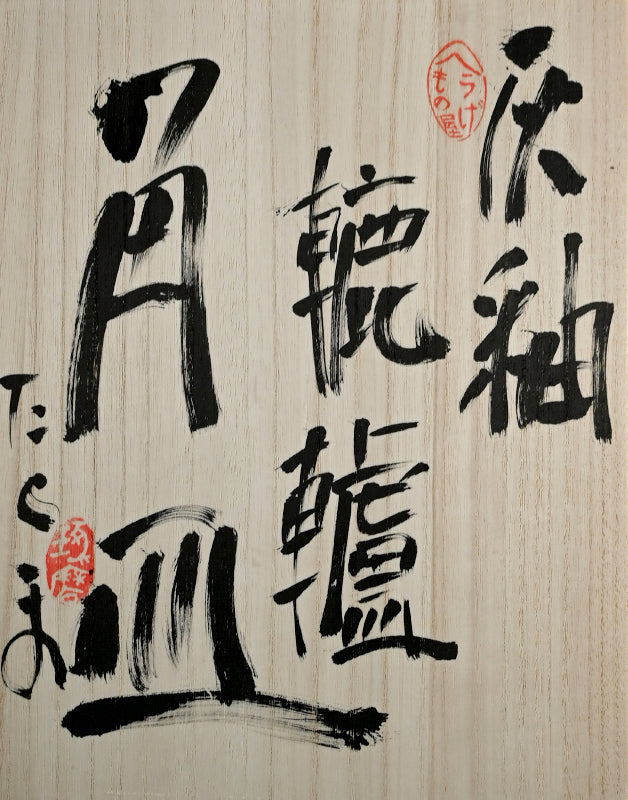 灰釉
へうげ
もの屋
轆轤
角皿
たくま
琢磨